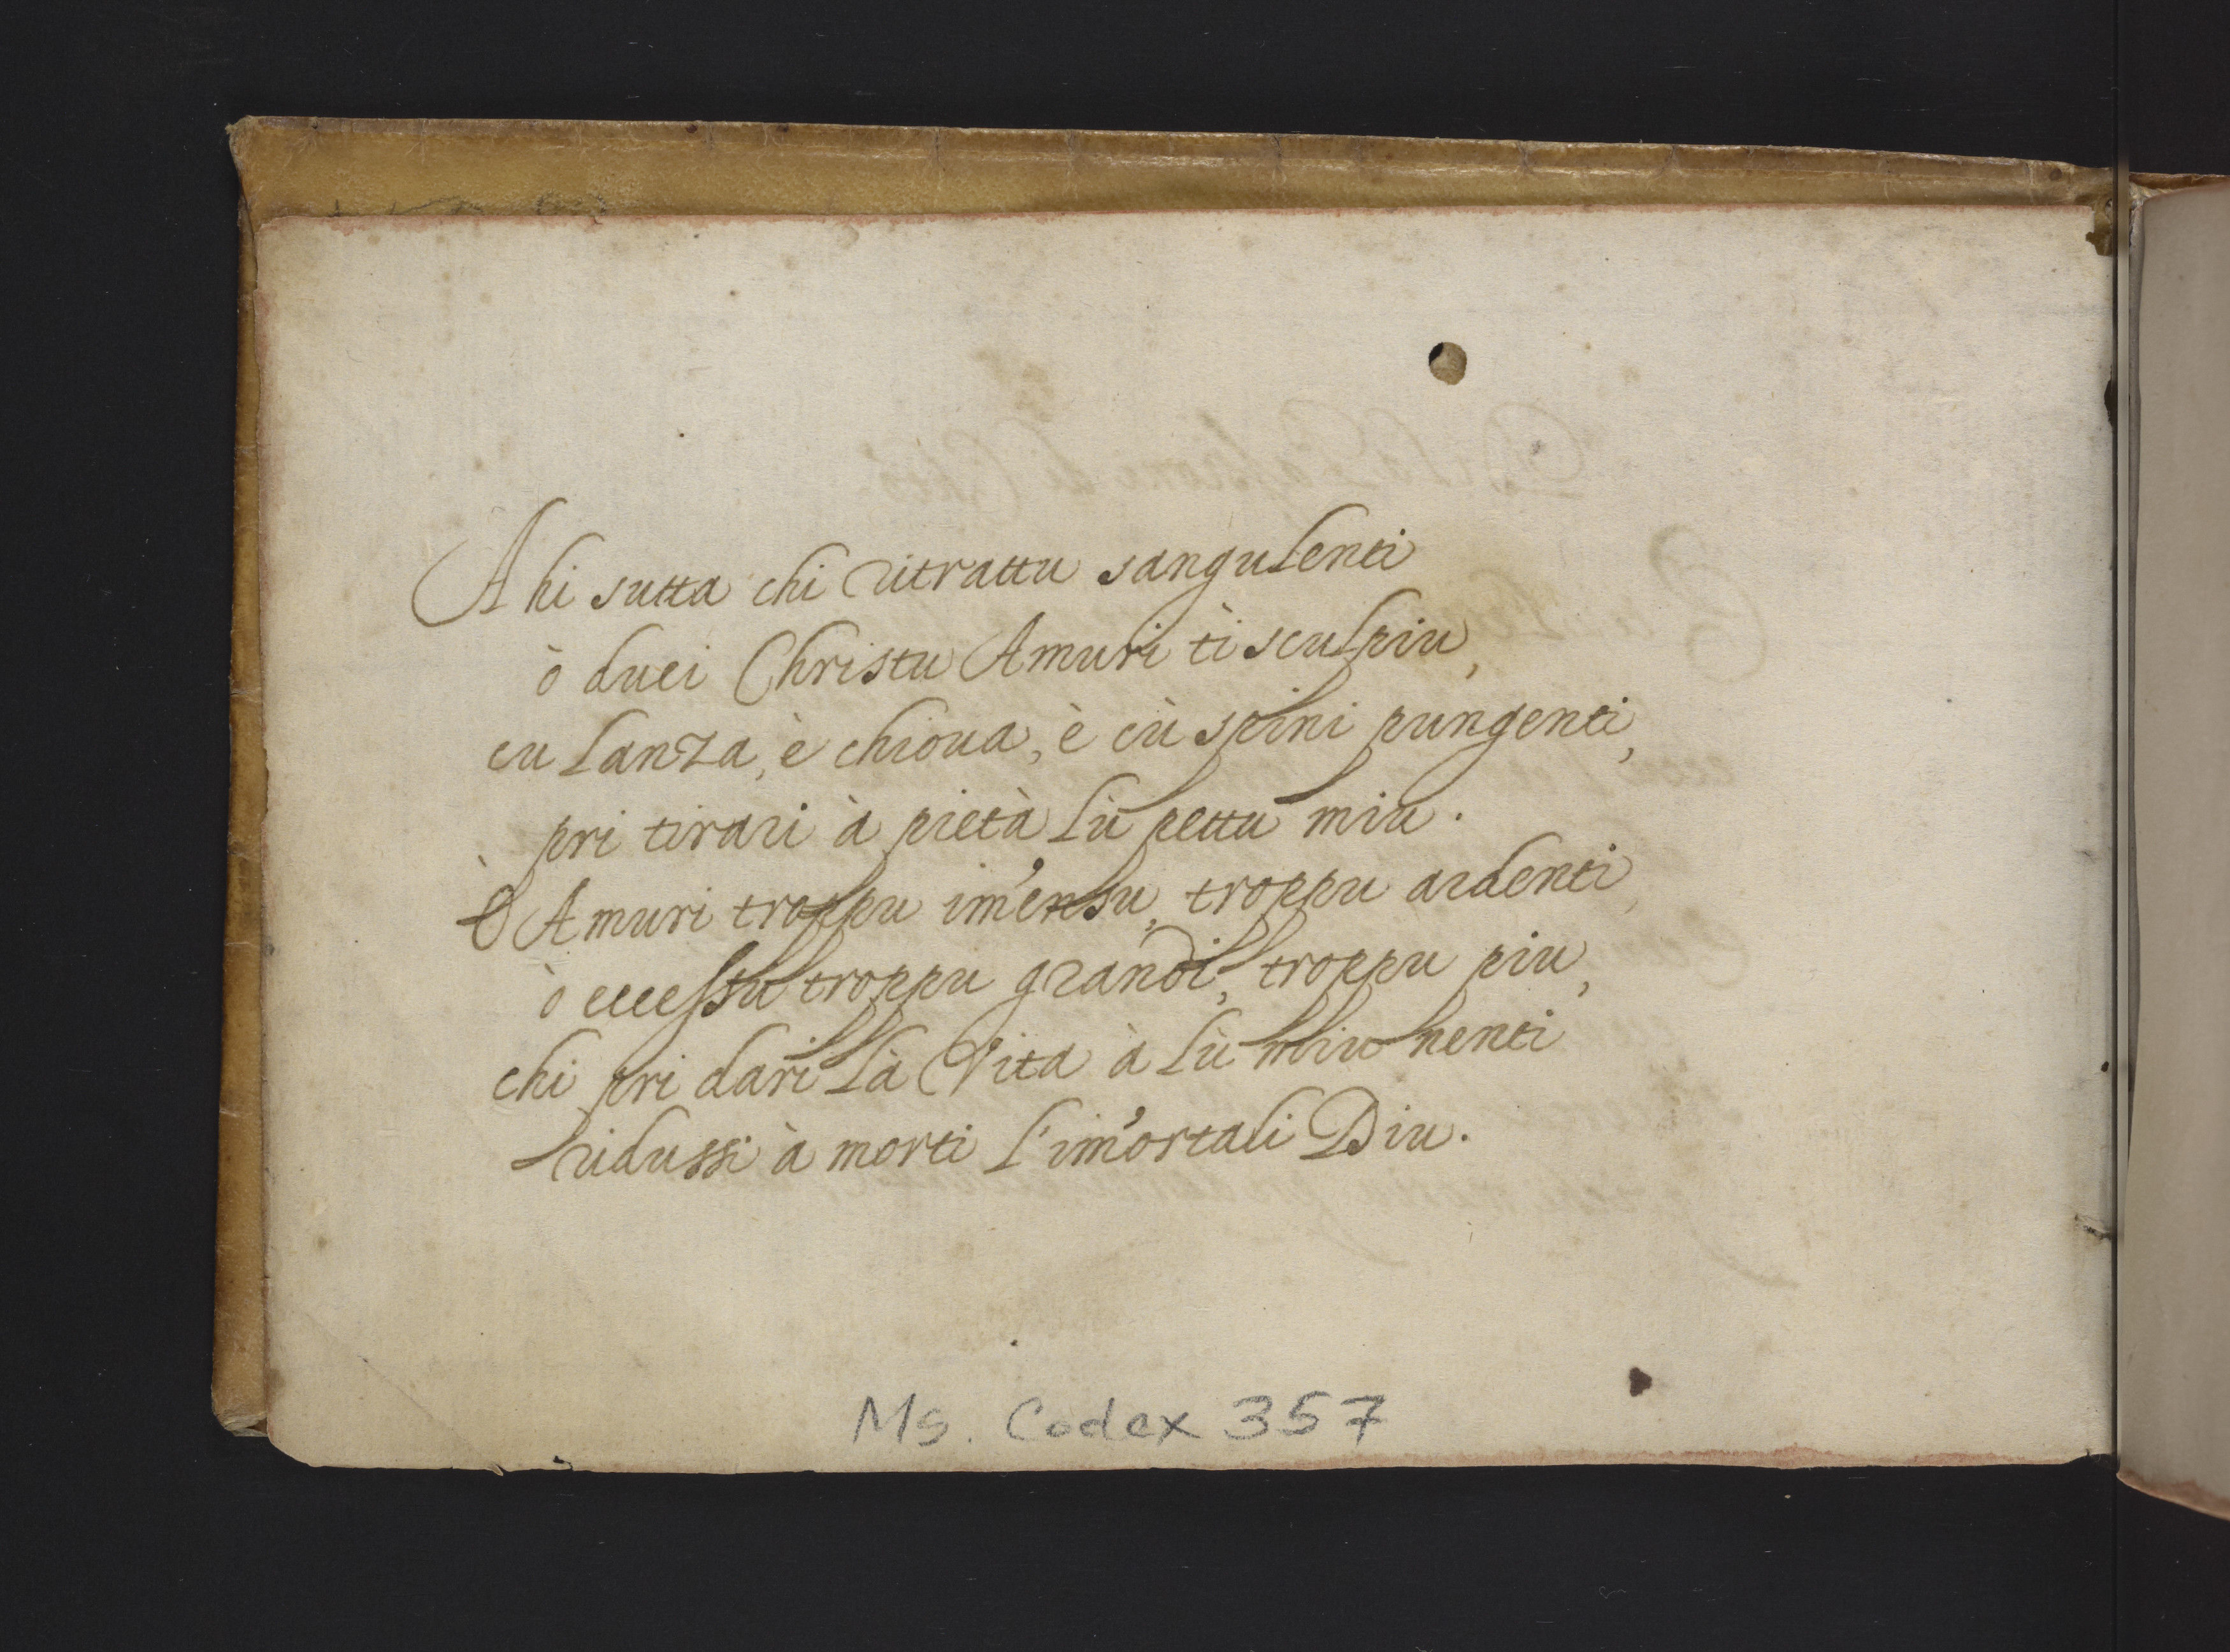 Ahi sutta chi ritrattu sangulenti
ò duci Christu Amuri ti sculpiu,
cu lanza, è chioua, è cù spini pungenti,
pri tirari à pietà lù pettu miu.
Ò Amuri troppu im̃ensu, troppu ardenti,
ò eccessu troppu grandi, troppu piu,
chi pri dari là Vita à lù miu nenti
ridussi à morti l'im̃ortali Diu.
Ms. Codex 357